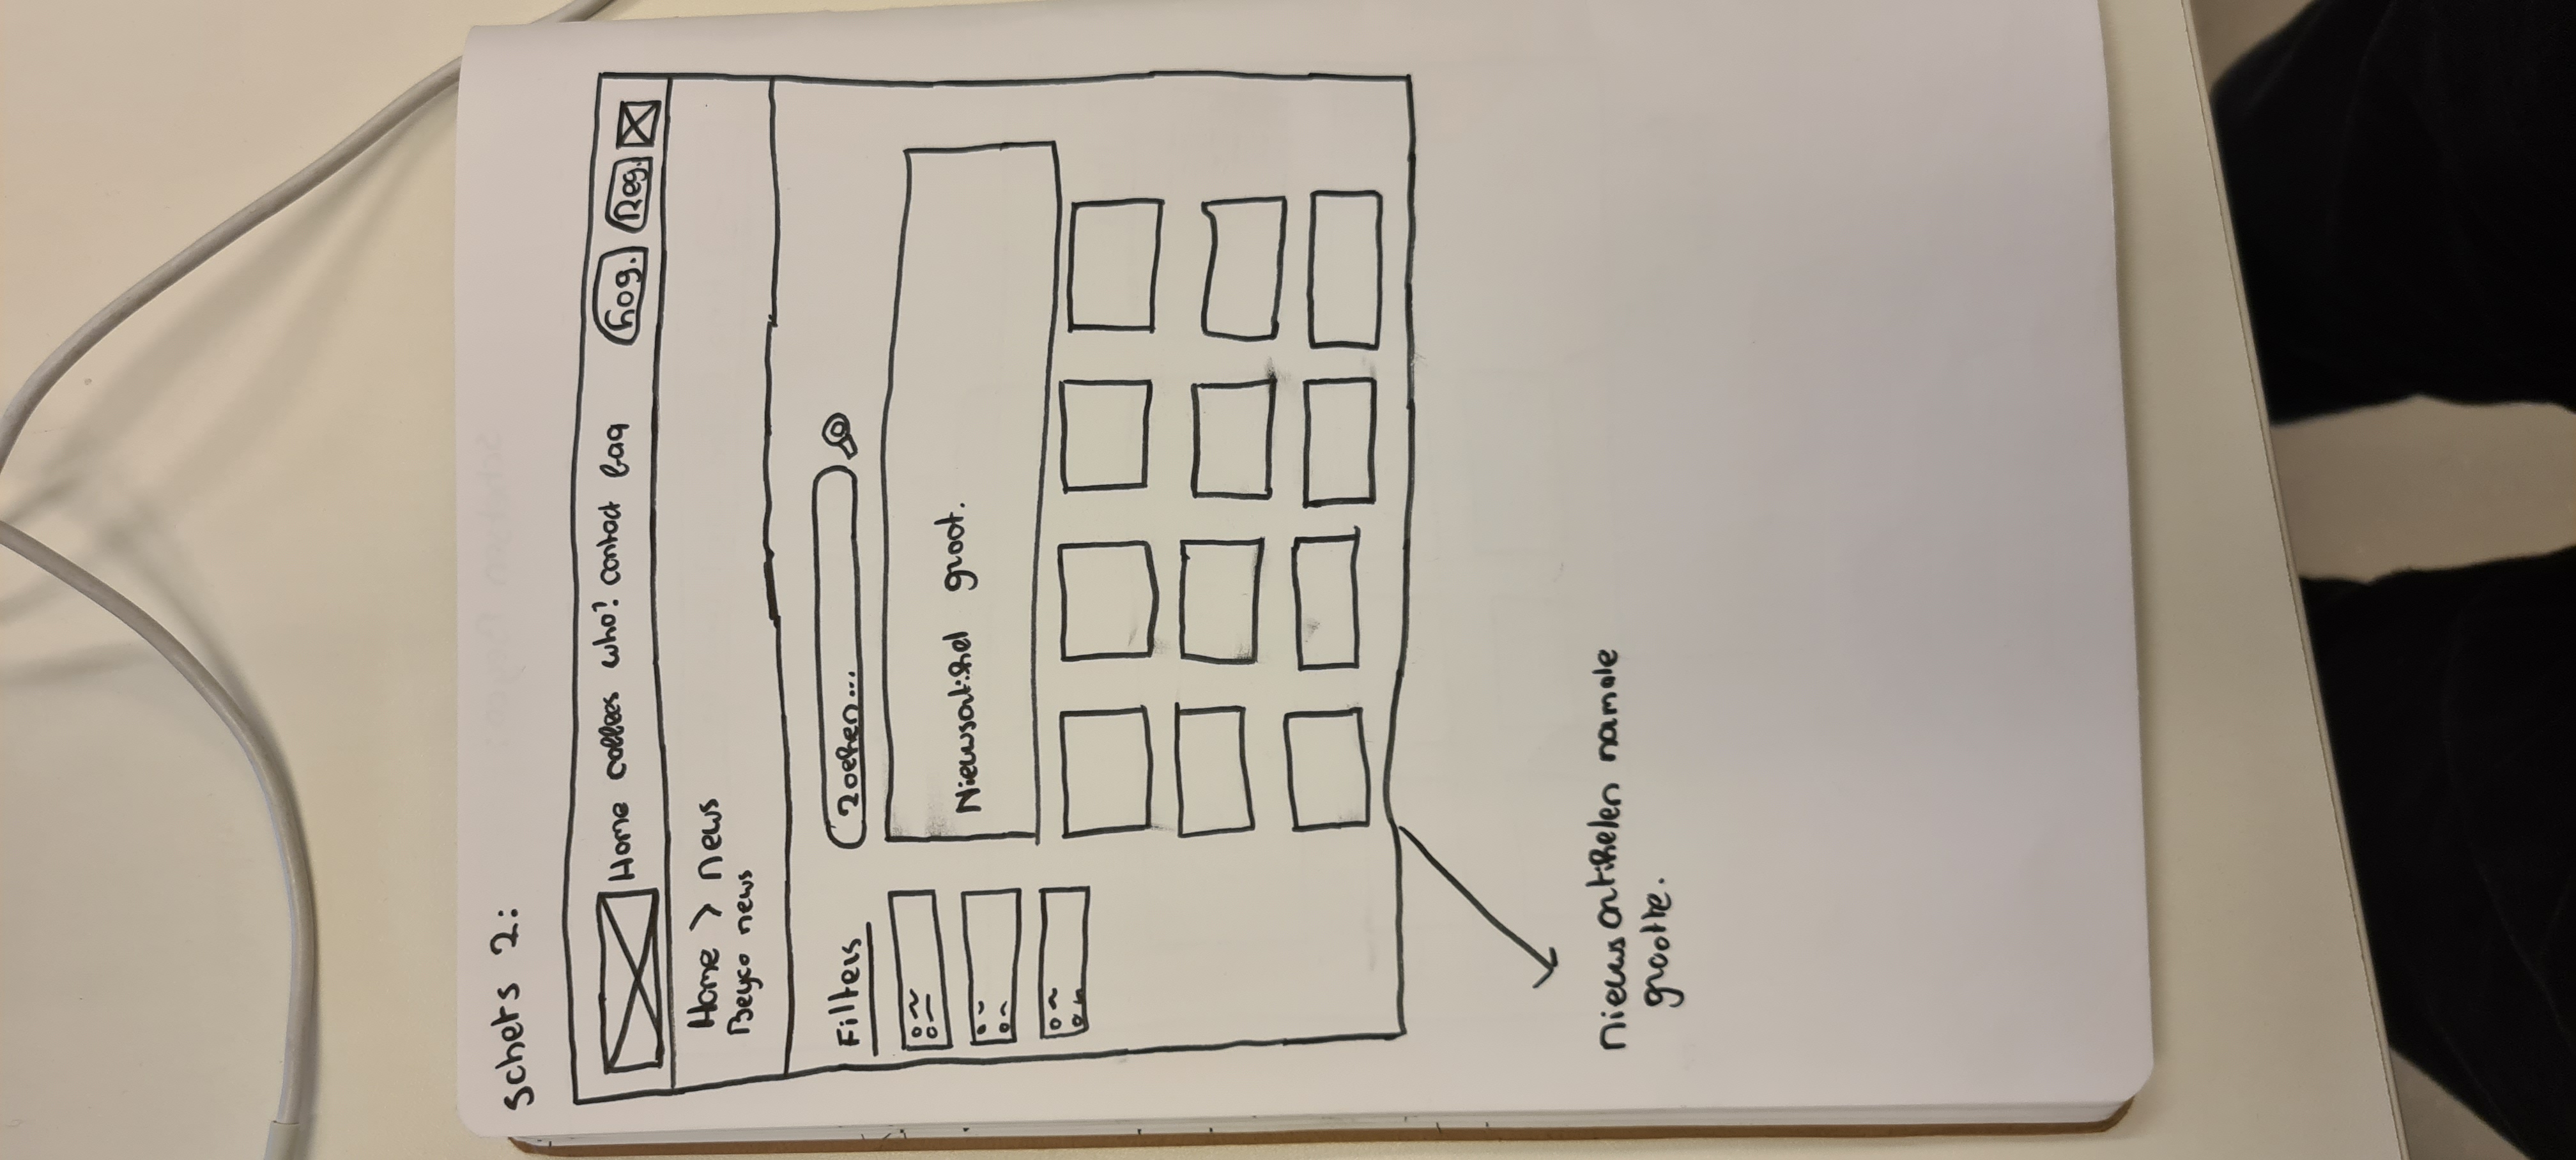 schets 2:
Home coffees who? contact faq
Log. Reg.
Home > news
Beyco news
Filters
Zoeken...
Nieuwsartikel groot.
nieuwsartikelen normale
grootte.